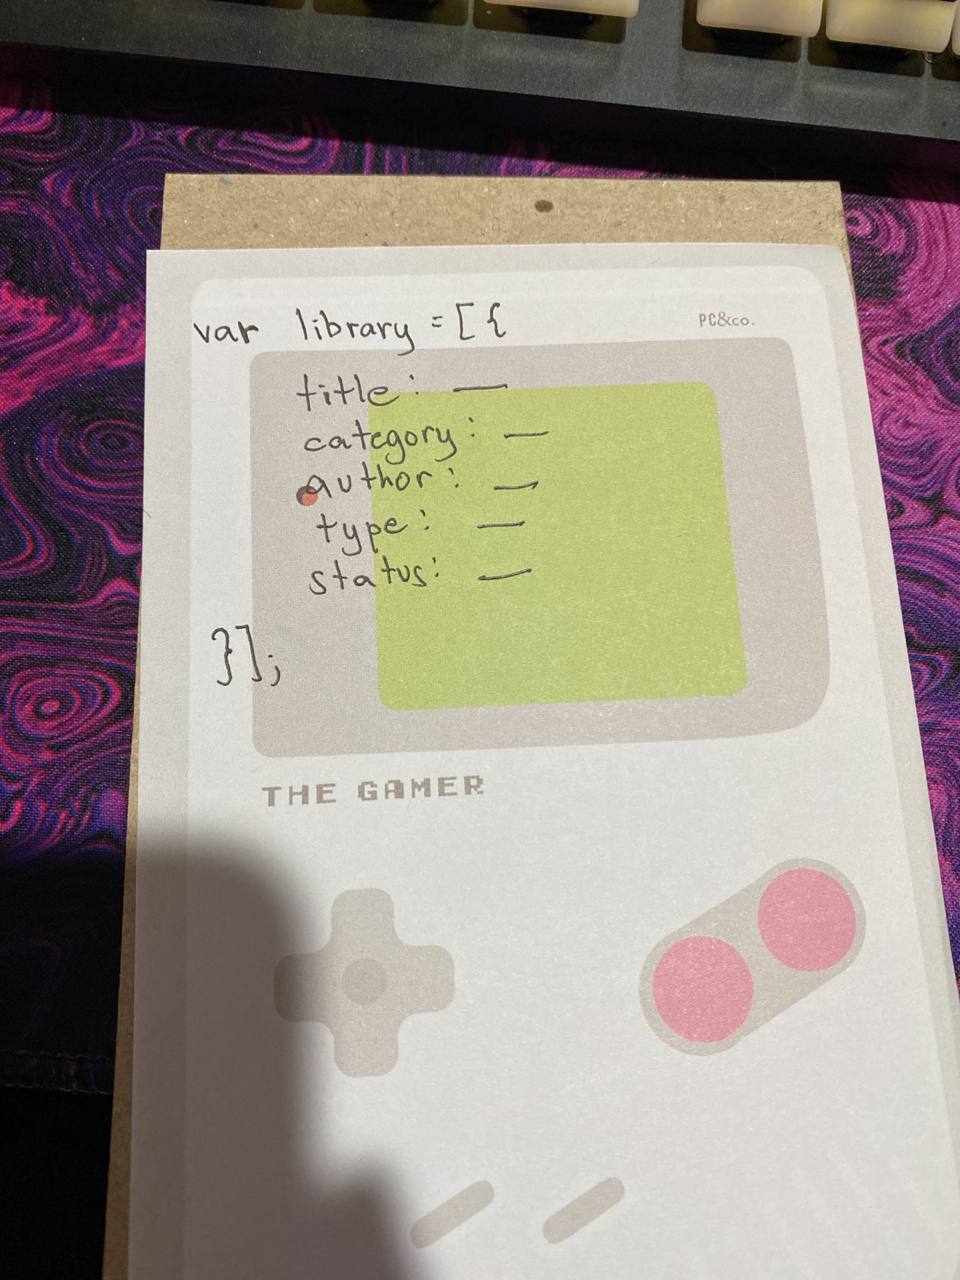 var library = [{
PC&co.
title: —
category: —
author: —
type: —
status: —
}];
THE GAMER